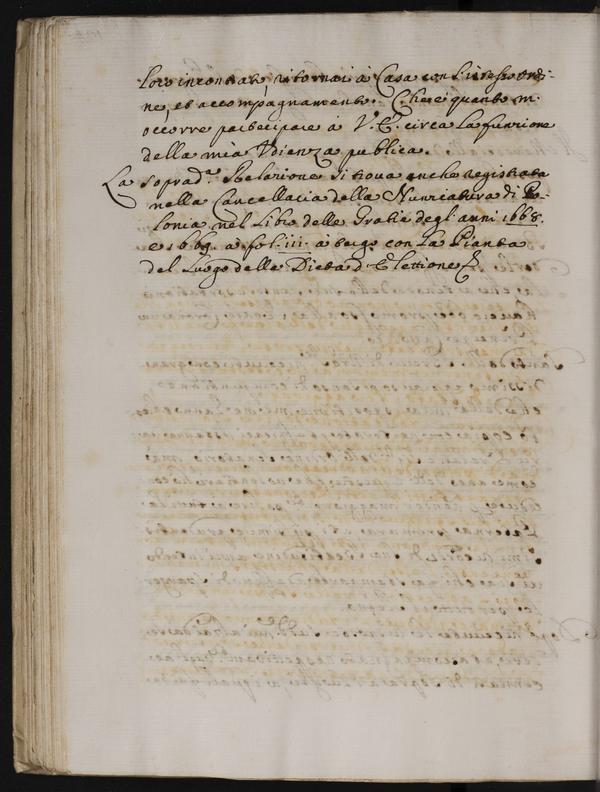 loro incontrate, ritornai à Casa con l'istesso ordi-
ne, et accompagnamento. Che è quanto m'
occorre partecipare à V. E. circa la funzione
della mia Udienza publica.
La soprad.a Relazione si troua anche registrata
nella Cancellaria della Nunziatura di Po-
lonia nel Libro delle Gratie degl'anni 1668.
e 1669. a fol. 111. à tergo con la Pianta
del Luogo della Dieta d'Elettione